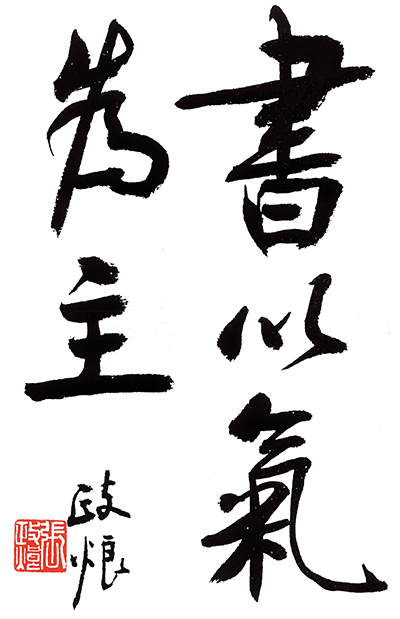 書以氣
為主
政烺
張政烺